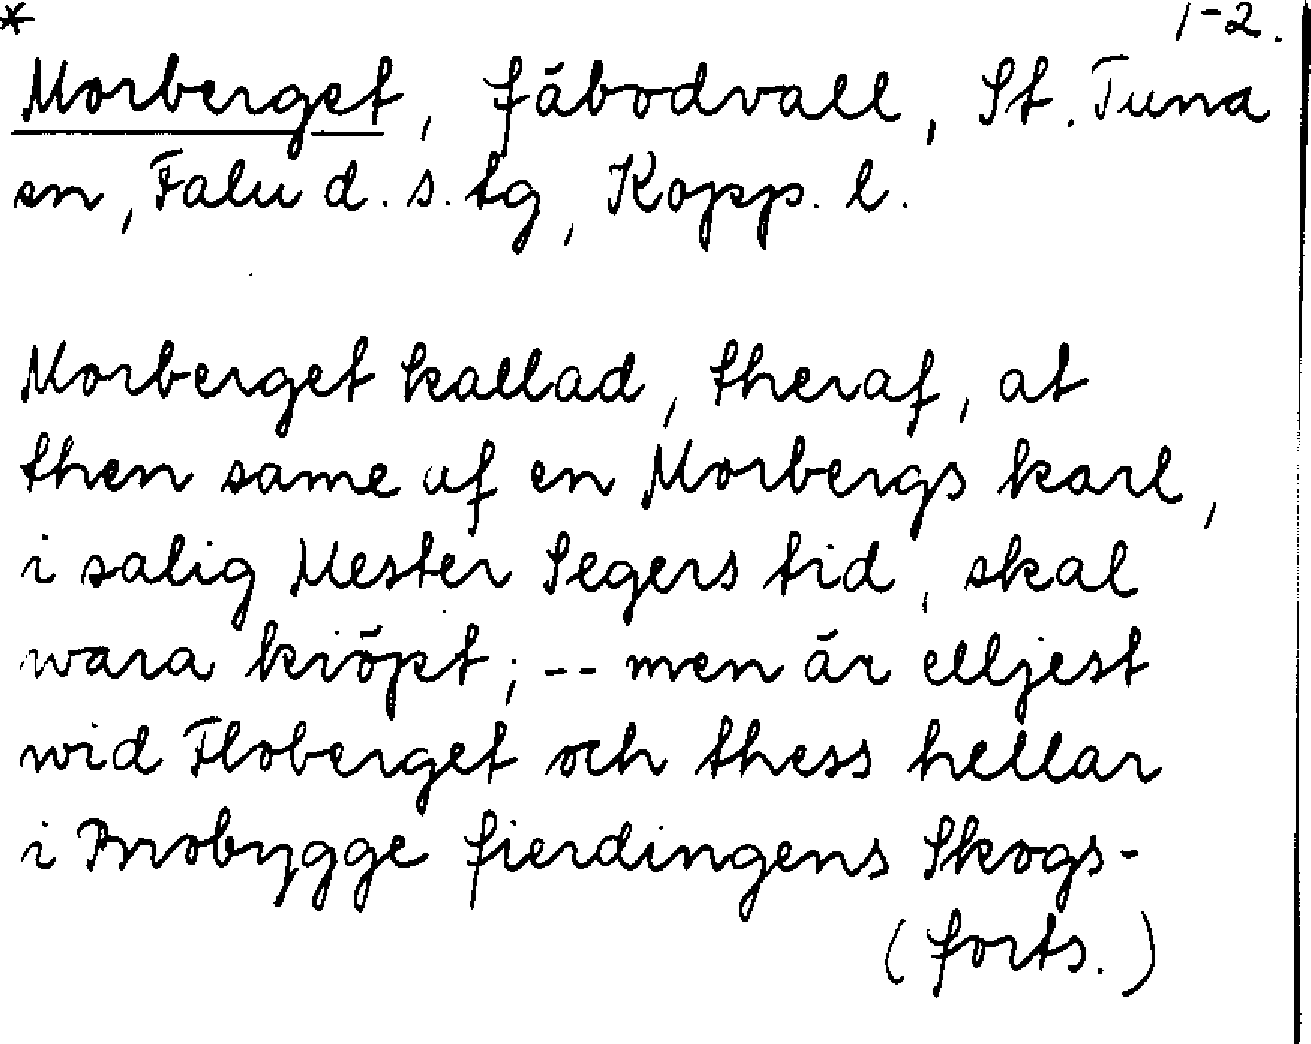 * 1-2.
Morberget, fäbodvall, St. Tuna
sn, Falu d. s. tg, Kopp. l.
Morberget kallad, theraf, at
then same af en Morbergs karl,
i salig Mester Segers tid, skal
wara kiöpt; -- men är elljest
wid Floberget och thess hellar
i Brobygge fierdingens Skogs-
(forts.)